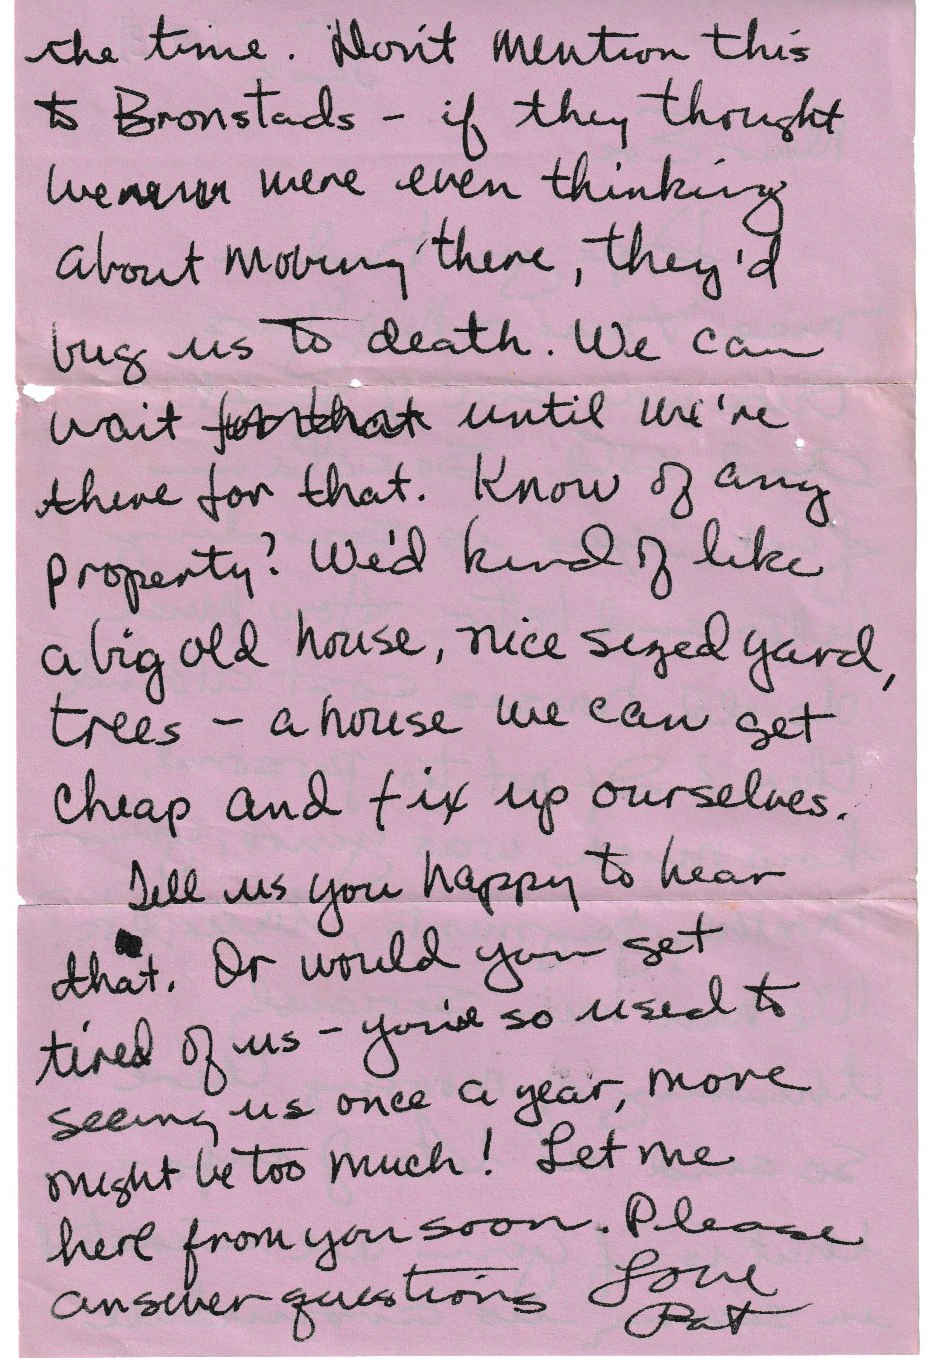 the time. Don't mention this
to Bronstads - if they thought
we were even thinking
about moving there, they'd
bug us to death. We can
wait for that until we're
there for that. Know of any
property? We'd kind of like
a big old house, nice sized yard,
trees - a house we can get
cheap and fix up ourselves.
Tell us you happy to hear
that. Or would you get
tired of us - you're so used to
seeing us once a year, more
might be too much! Let me
here from you soon. Please
answer questions Love
Pat